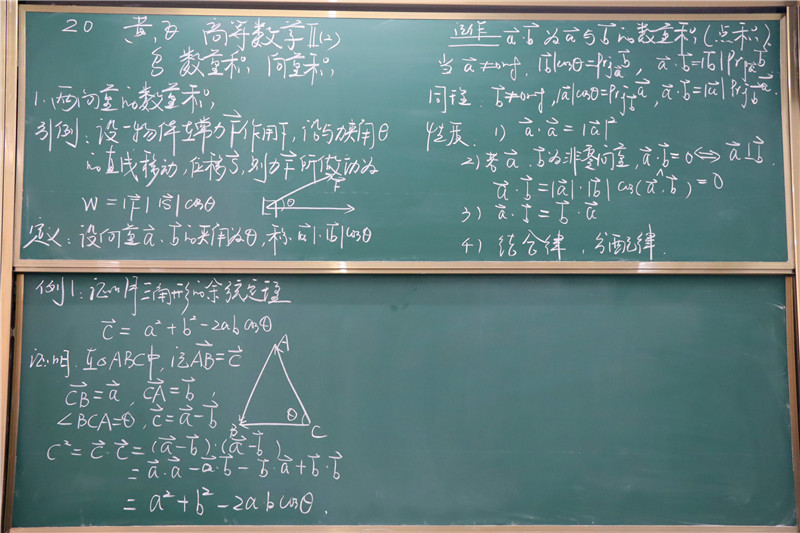 20 黄,飞 高等数学II(2)
§ 数量积 向量积
1. 两向量的数量积
引例：设一物体在常力F⃗作用下,沿与力夹角θ
的直线移动,位移S⃗,则力F⃗所做功为
W = |F⃗| |S⃗| cosθ
F θ
定义：设向量a⃗·b⃗的夹角为θ,称|a⃗|·|b⃗|cosθ
记作 a⃗·b⃗ 为a⃗与b⃗的数量积(点积)
当 a⃗≠0时, |b⃗|cosθ=Prj_a⃗ b⃗, a⃗·b⃗=|a⃗|Prj_a⃗ b⃗
同理 b⃗≠0时, |a⃗|cosθ=Prj_b⃗ a⃗, a⃗·b⃗=|b⃗|Prj_b⃗ a⃗.
性质 1) a⃗·a⃗=|a⃗|²
2) 若a⃗.b⃗为非零向量, a⃗·b⃗=0⇔a⃗⊥b⃗
a⃗·b⃗=|a⃗|·|b⃗|cos(a⃗^b⃗)=0
3) a⃗·b⃗=b⃗·a⃗
4) 结合律, 分配律.
例1：证明三角形的余弦定理
c⃗=a²+b²-2ab cosθ
证明.在△ABC中,记AB⃗=c⃗
CB⃗=a⃗, CA⃗=b⃗,
∠BCA=θ, c⃗=a⃗-b⃗
A
B θ C
c²=c⃗·c⃗=(a⃗-b⃗)·(a⃗-b⃗)
=a⃗·a⃗-a⃗·b⃗-b⃗·a⃗+b⃗·b⃗
=a²+b²-2ab cosθ.